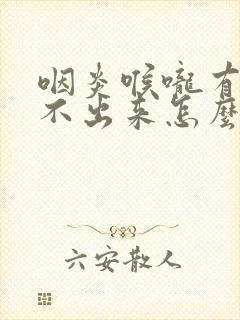 咽炎喉嚨有
不出来怎麽
六安散人